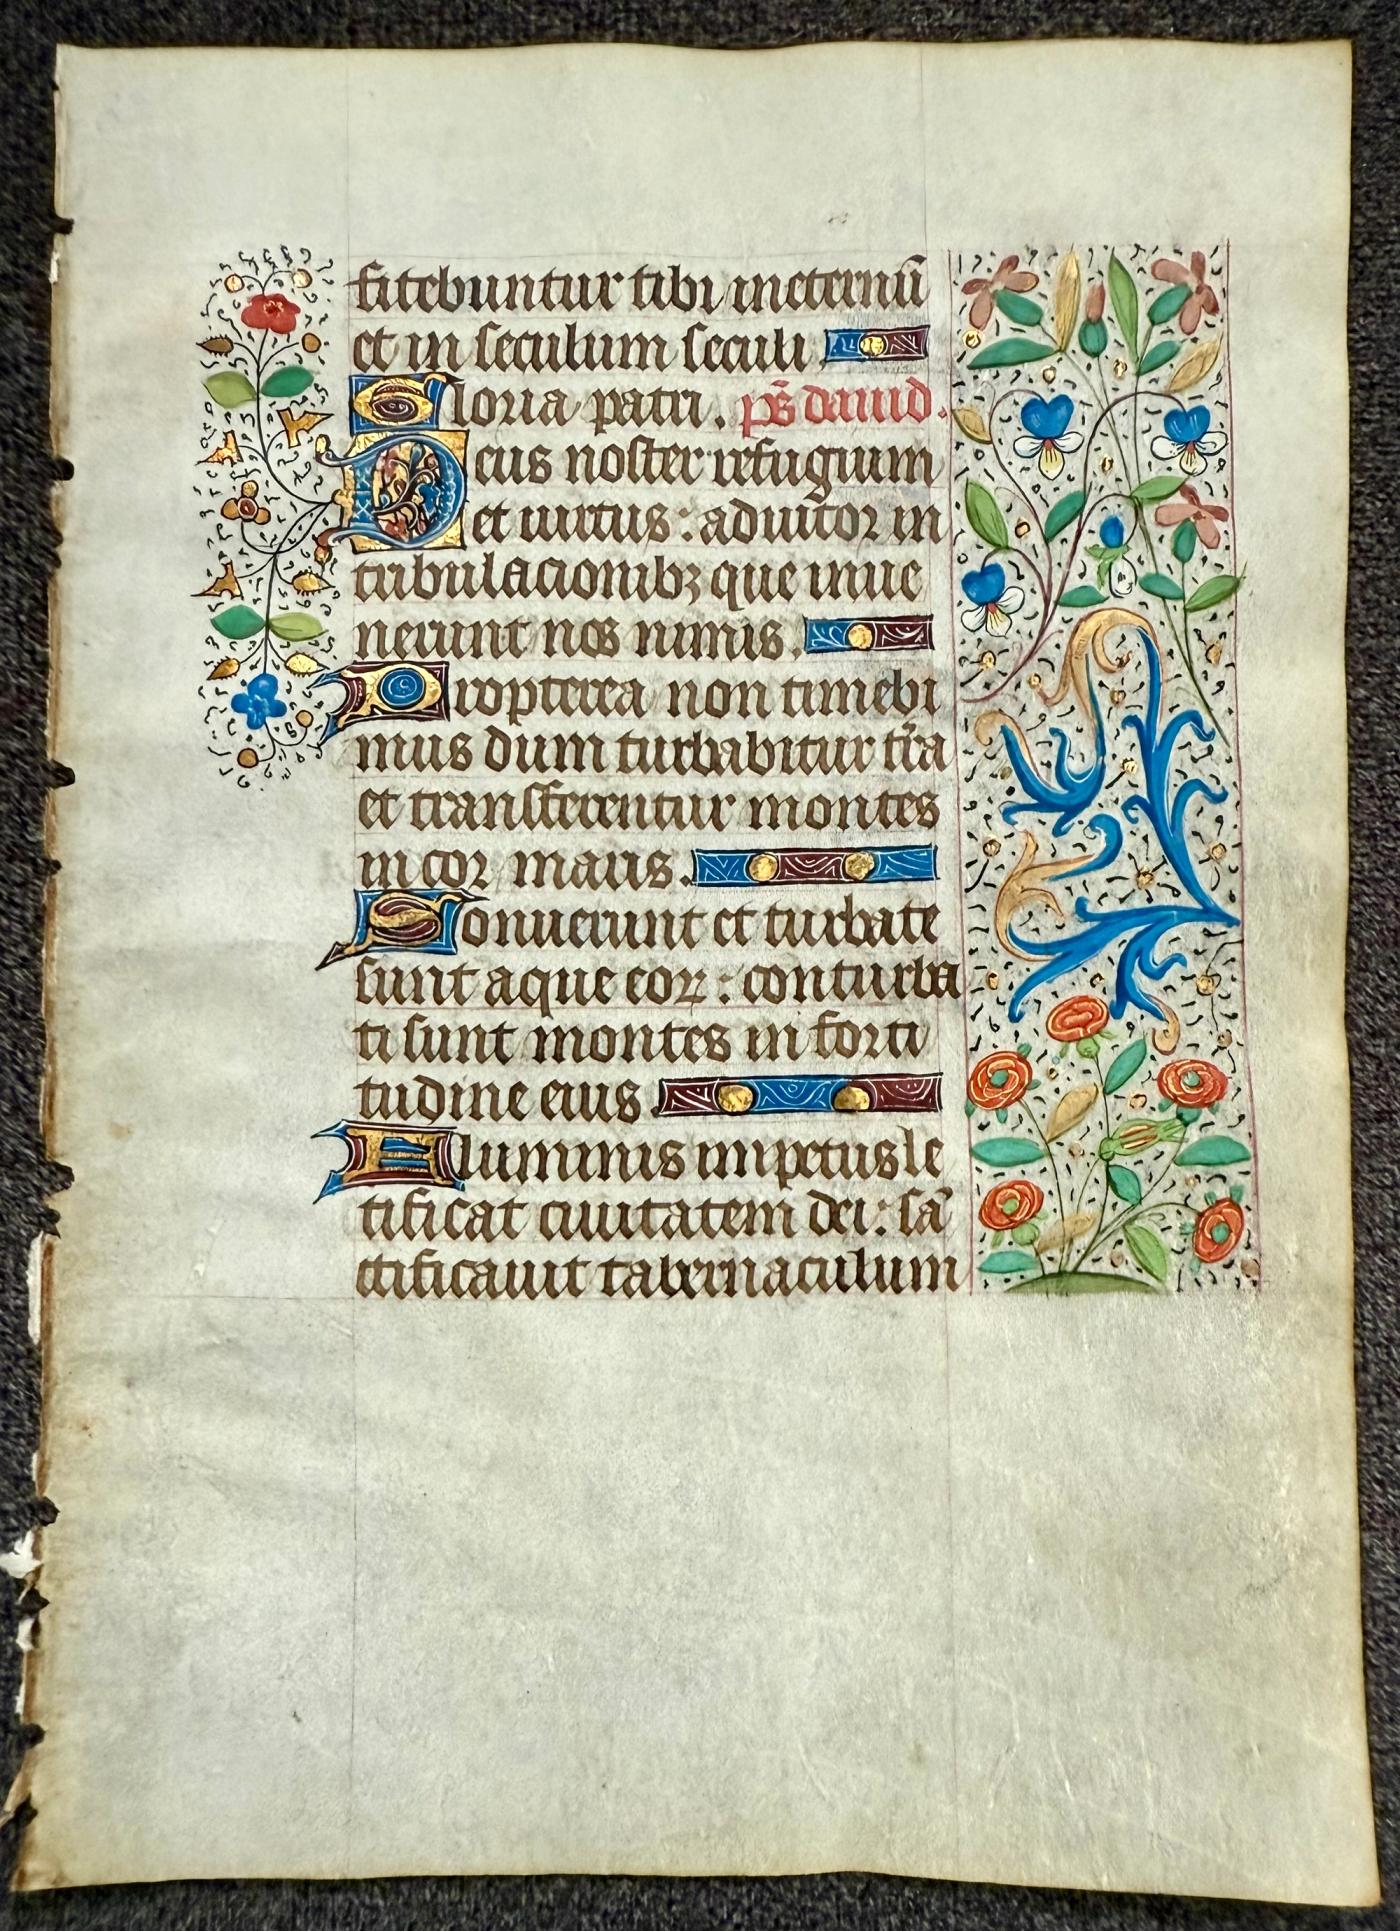 fitebuntur tibi ineternū
et in seculum seculi.
Gloria patri. ps̄ dauid.
Deus noster refugium
et uirtus: adiutor in
tribulacionibꝫ que inue
nerunt nos nimis.
Propterea non timebi
mus dum turbabitur tr̄a
et transferentur montes
in cor maris.
Sonuerunt et turbate
sunt aque eoꝝ: conturba
ti sunt montes in forti
tudine eius.
Fluminis impetus le
tificat ciuitatem dei: sā
ctificauit tabernaculum